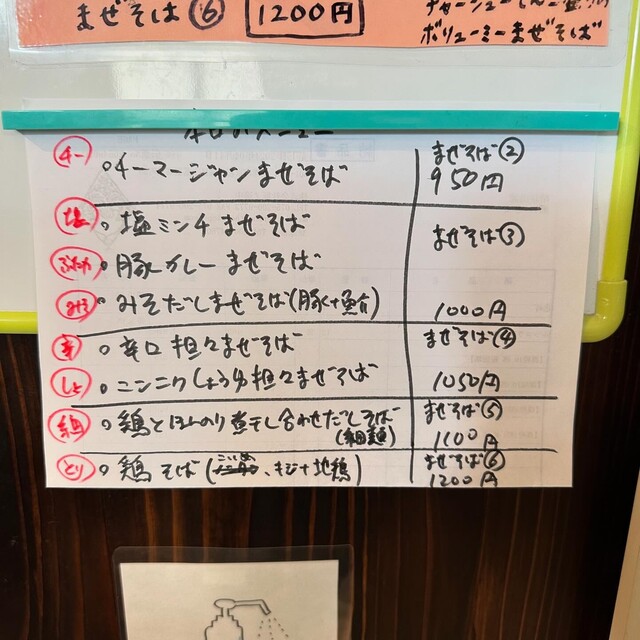 まぜそば⑥ 1200円
ボリューミーまぜそば
本日のメニュー
チー 。チーマージャンまぜそば まぜそば②
950円
塩 。塩ミンチまぜそば まぜそば③
ぶたカ 。豚カレーまぜそば
みそ 。みそだしまぜそば(豚+魚介) 1000円
辛 。辛口担々まぜそば まぜそば④
しょ 。ニンニクしょうゆ担々まぜそば 1050円
。鶏とほんのり煮干し合わせだしそば まぜそば⑤
(細麺) 1100円
とり 。鶏そば(、キジ+地鶏) まぜそば⑥
1200円